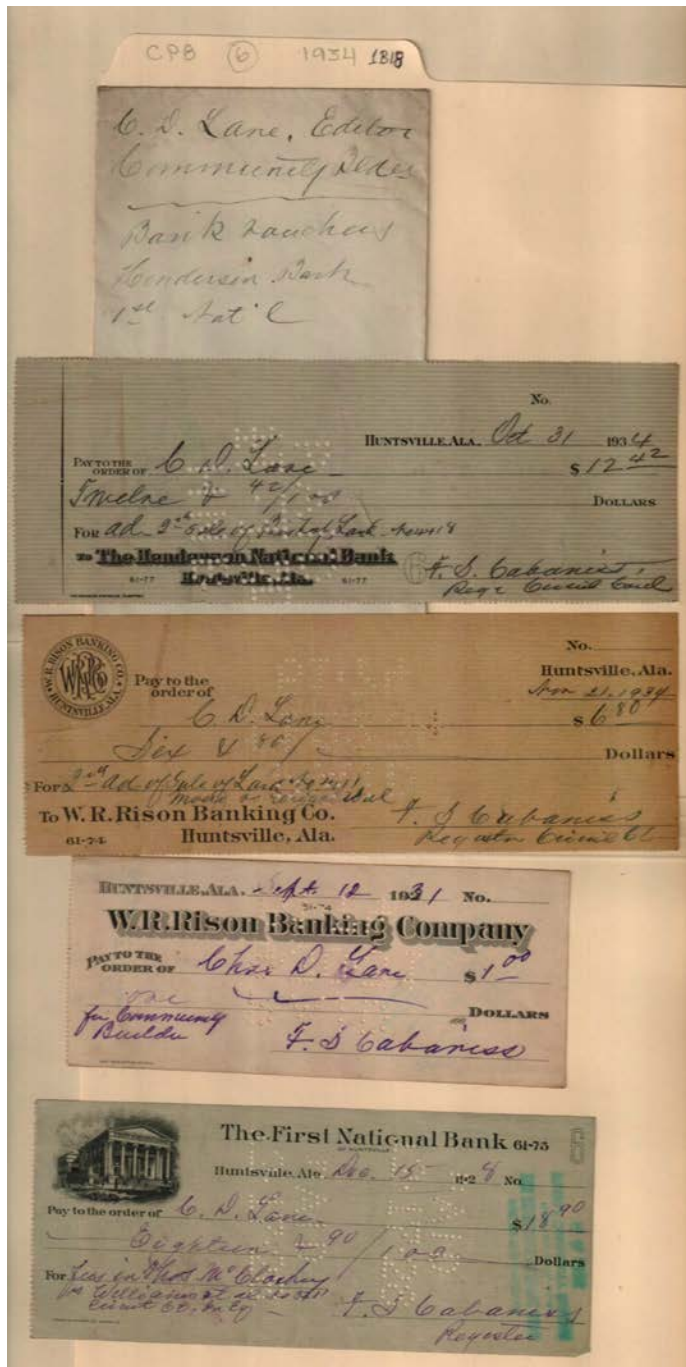 CPB 6 1934 1818
C. D. Lane, Editor
Community Bldr
Bank Vouchers
Henderson Bank
1st Nat'l
No.
HUNTSVILLE, ALA. Oct 31 1934
PAY TO THE
ORDER OF C. D. Lane $12 42
Twelve & 42/100 DOLLARS
FOR ad 2nd Sale of
TO The Henderson National Bank
61-77 Huntsville, Ala. 61-77
F. S. Cabaniss,
Regr Circuit Court
W. R. RISON BANKING CO. HUNTSVILLE, ALA.
No.
Pay to the
order of
Huntsville, Ala.
Nov 21, 1934
C. D. Lane $6 80
Six & 80/ Dollars
For ad of Sale of
To W. R. Rison Banking Co.
61-74 Huntsville, Ala.
F. S. Cabaniss
Register Circuit Ct
HUNTSVILLE, ALA. Sept. 12 1931 No.
61-74
W. R. Rison Banking Company
PAY TO THE
ORDER OF Chas D. Lane $1 00
one DOLLARS
for Community
Builder
F. S. Cabaniss
The First National Bank 61-75
OF HUNTSVILLE
Huntsville, Ala Dec. 15 1928 No.
Pay to the order of C. D. Lane $18 90
Eighteen & 90/100 Dollars
For Fees in Thos McCloskey
vs Williams et al
Circuit Ct. In Eq
F. S. Cabaniss
Register